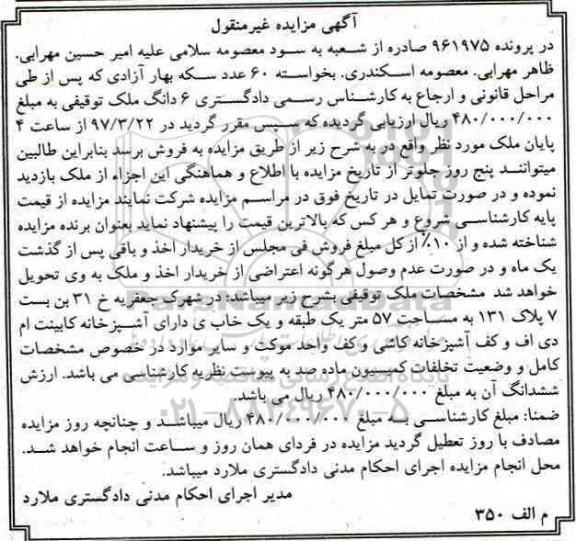 آگهی مزایده غیرمنقول
در پرونده ۹۶۱۹۷۵ صادره از شعبه به سود معصومه سلامی علیه امیر حسین مهرابی.
ظاهر مهرابی. معصومه اسکندری. بخواسته ۶۰ عدد سکه بهار آزادی که پس از طی
مراحل قانونی و ارجاع به کارشناس رسمی دادگستری ۶ دانگ ملک توقیفی به مبلغ
۴۸۰/۰۰۰/۰۰۰ ریال ارزیابی گردیده که سپس مقرر گردید در ۹۷/۳/۲۲ از ساعت ۴
پایان ملک مورد نظر واقع در به شرح زیر از طریق مزایده به فروش برسد بنابراین طالبین
میتوانند پنج روز جلوتر از تاریخ مزایده با اطلاع و هماهنگی این اجزاء از ملک بازدید
نموده و در صورت تمایل در تاریخ فوق در مراسم مزایده شرکت نمایند مزایده از قیمت
پایه کارشناسی شروع و هر کس که بالاترین قیمت را پیشنهاد نماید بعنوان برنده مزایده
شناخته شده و از ۱۰٪ از کل مبلغ فروش فی مجلس از خریدار اخذ و باقی پس از گذشت
یک ماه و در صورت عدم وصول هرگونه اعتراضی از خریدار اخذ و ملک به وی تحویل
خواهد شد مشخصات ملک توقیفی بشرح زیر میباشد: در شهرک جعفریه خ ۳۱ بن بست
۷ پلاک ۱۳۱ به مساحت ۵۷ متر یک طبقه و یک خاب ی دارای آشپزخانه کابینت ام
دی اف و کف آشپزخانه کاشی و کف واحد موکت و سایر موارد در خصوص مشخصات
کامل و وضعیت تخلفات کمسیون ماده صد به پیوست نظریه کارشناسی می باشد. ارزش
ششدانگ آن به مبلغ ۴۸۰/۰۰۰/۰۰۰ ریال می باشد.
ضمنا: مبلغ کارشناسی به مبلغ ۴۸۰/۰۰۰/۰۰۰ ریال میباشد و چنانچه روز مزایده
مصادف با روز تعطیل گردید مزایده در فردای همان روز و ساعت انجام خواهد شد.
محل انجام مزایده اجرای احکام مدنی دادگستری ملارد میباشد.
مدیر اجرای احکام مدنی دادگستری ملارد
م الف ۳۵۰